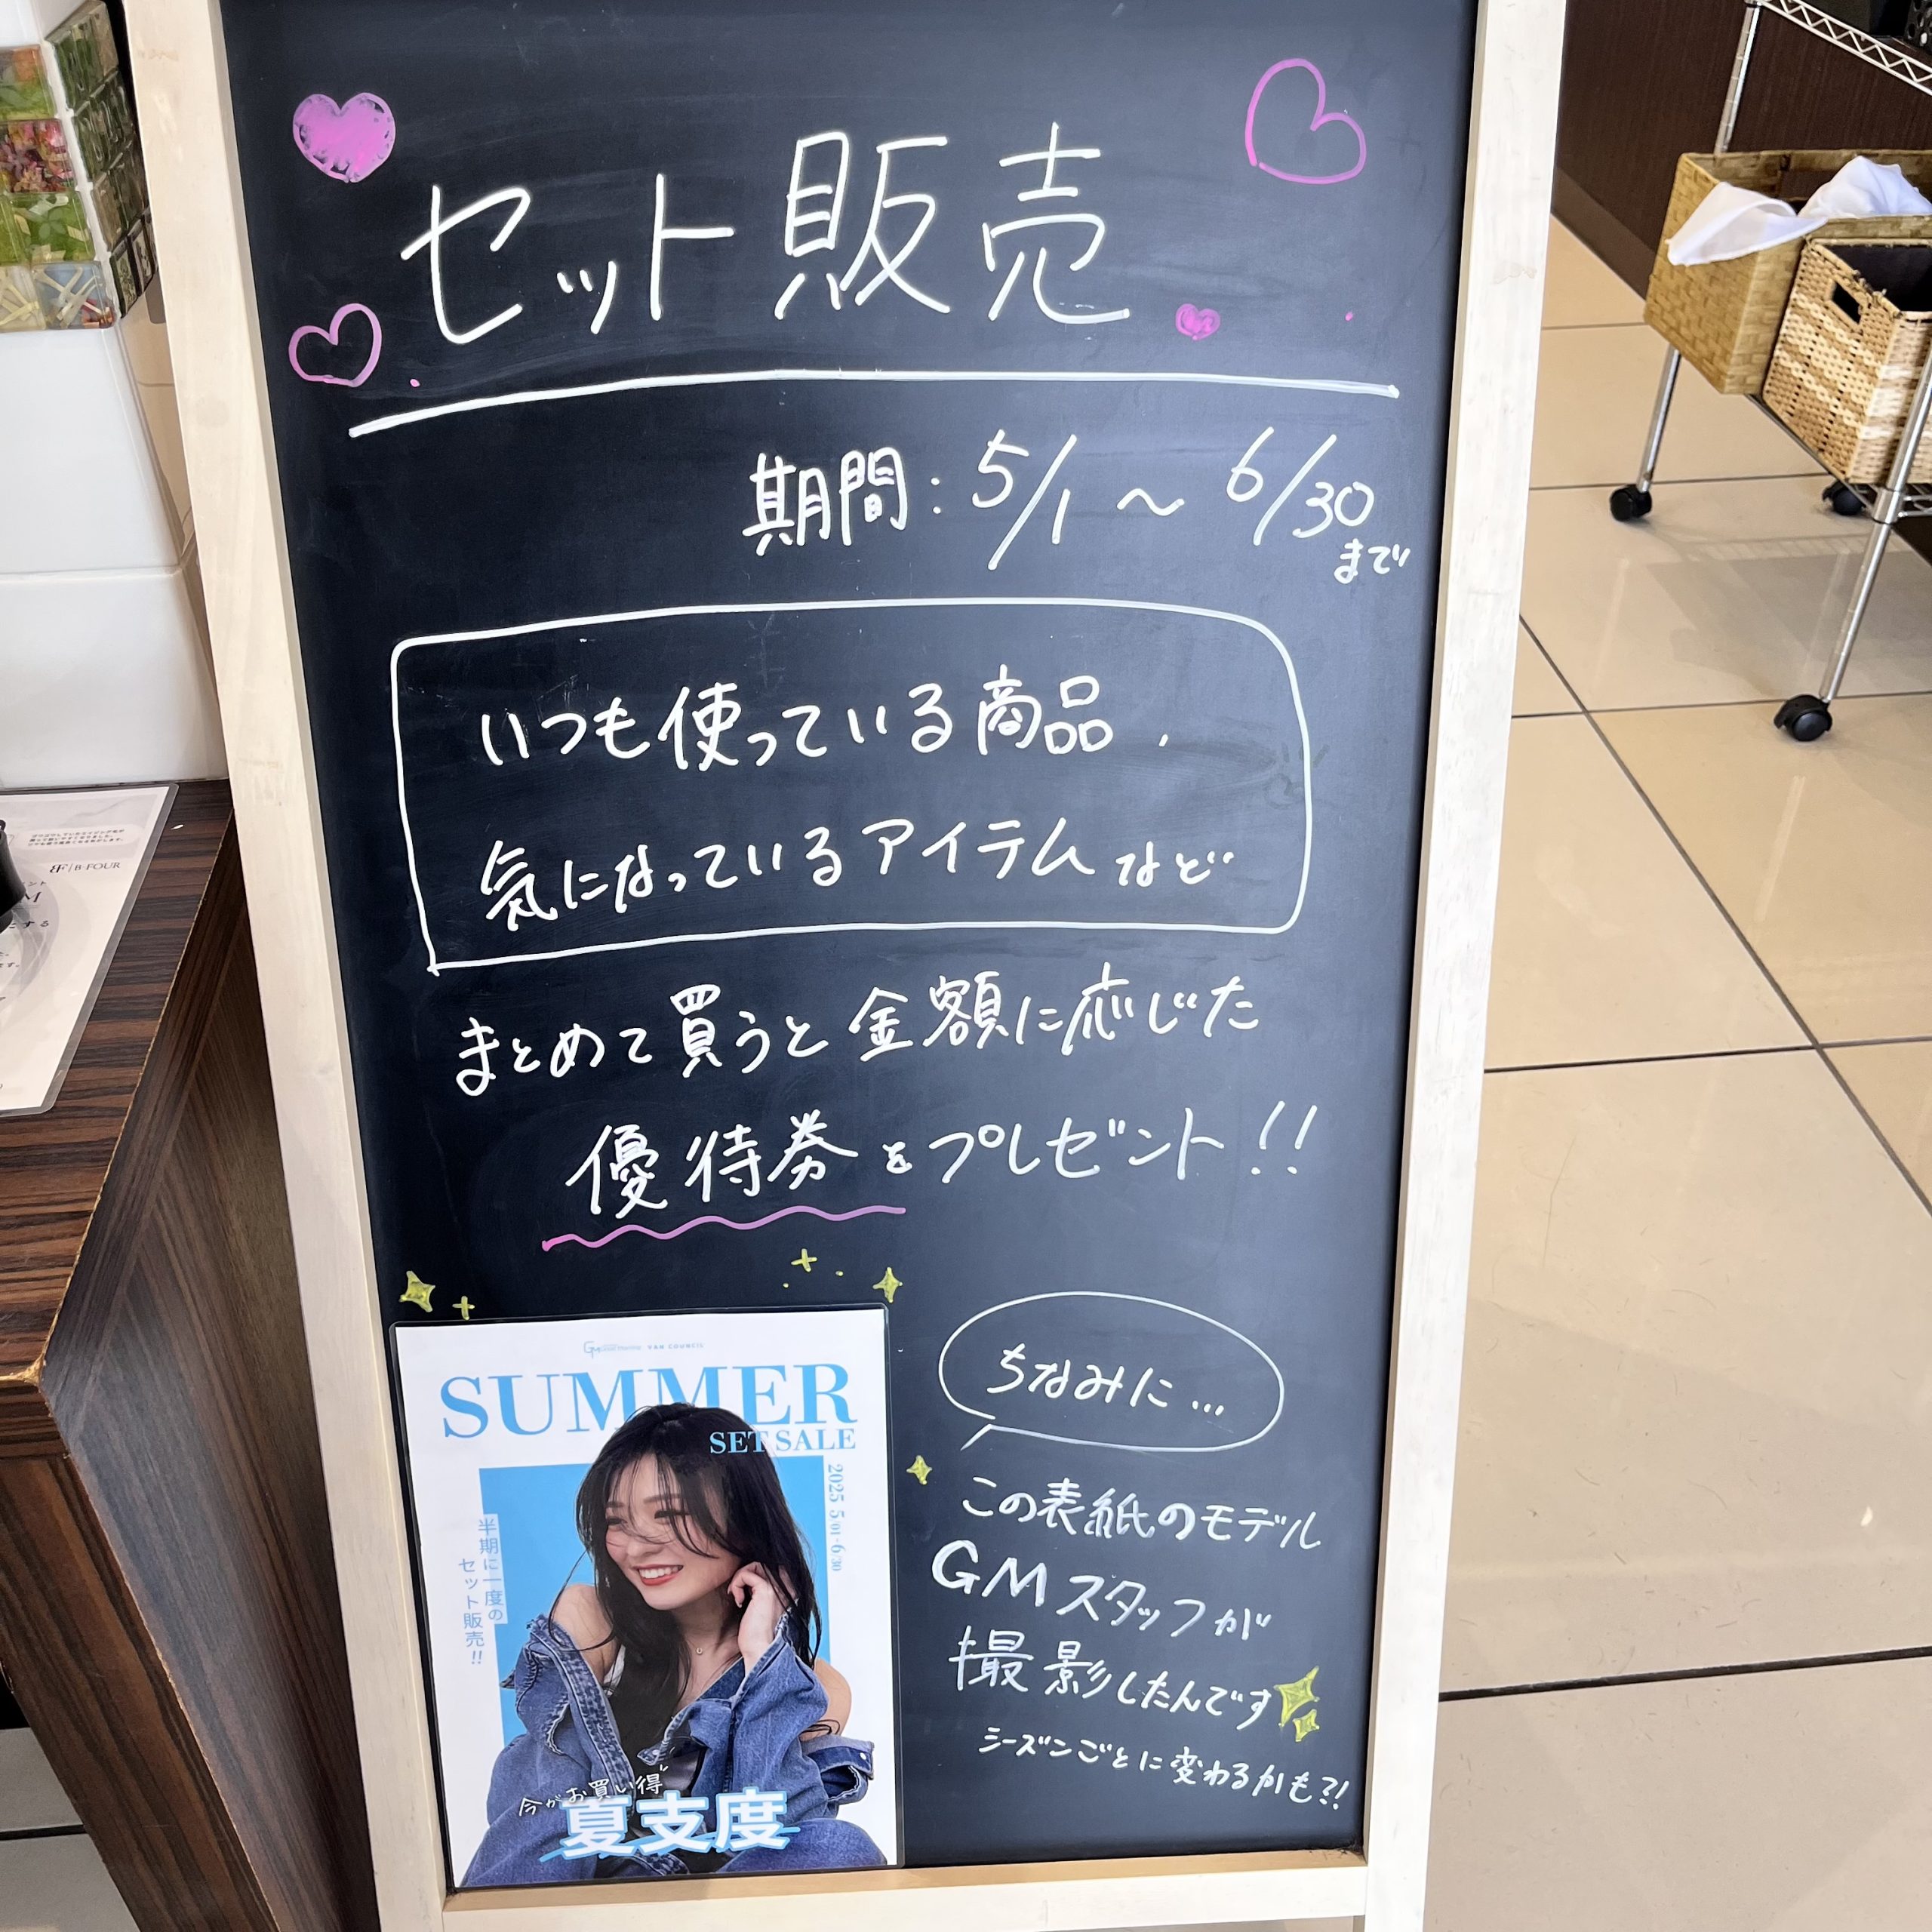 セット販売
期間：5/1 ～ 6/30
まで
いつも使っている商品、
気になっているアイテムなど
まとめて買うと金額に応じた
優待券をプレゼント!!
VAN COUNCIL
SUMMER
SET SALE
2025 5/01-6/30
半期に一度の
セット販売!!
今がお買い得
夏支度
ちなみに…
この表紙のモデル
GMスタッフが
撮影したんです
シーズンごとに変わるかも?!
BF/B-FOUR